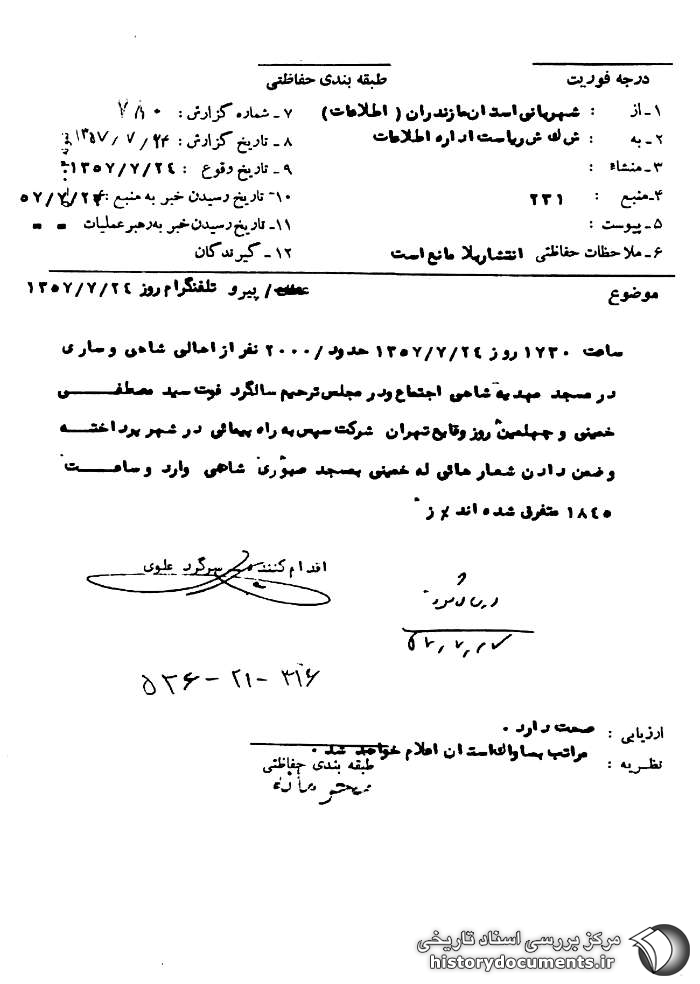 درجه فوریت
طبقه بندی حفاظتی
۱ـ از : شهربانی استان مازندران ( اطلاعات )
۲ـ به : ش ک ش ریاست اداره اطلاعات
۳ـ منشاء :
۴ـ منبع : ۲۳۱
۵ـ پیوست :
۶ـ ملاحظات حفاظتی انتشار بلا مانع است
۷ـ شماره گزارش :
۸ـ تاریخ گزارش : ۱۳۵۷/۷/۲۴
۹ـ تاریخ وقوع : ۱۳۵۷/۷/۲۴
۱۰ـ تاریخ رسیدن خبر به منبع : ۵۷/۷/۲۴
۱۱ـ تاریخ رسیدن خبر به رهبر عملیات - -
۱۲ـ گیرندگان
موضوع / پیرو تلفنگرام روز ۱۳۵۷/۷/۲۴
ساعت ۱۷۳۰ روز ۱۳۵۷/۷/۲۴ حدود /۲۰۰۰ نفر از اهالی شاهی و ساری
در مسجد مهدیه شاهی اجتماع ودر مجلس ترحیم سالگرد فوت سید مصطفی
خمینی و چهلمین روز وقایع تهران شرکت سپس به راه پیمائی در شهر پرداخته
و ضمن دادن شعار هائی له خمینی بمسجد صبوری شاهی وارد و ساعت
۱۸۴۵ متفرق شده اند /ز
اقدام کننده سرگرد علوی
۵۳۶-۲۱-۳۱۶
ارزیابی : صحت دارد .
نظریه : مراتب بساواک استان اعلام خواهد شد .
طبقه بندی حفاظتی
مرکز بررسی اسناد تاریخی
historydocuments.ir